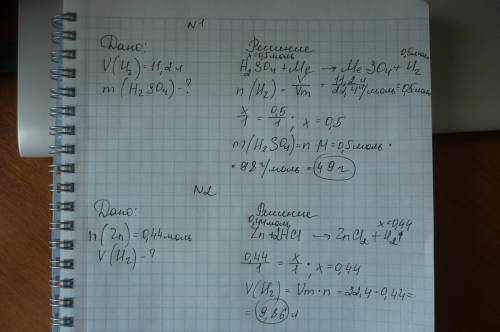 N1
Дано:
V(H₂)=11,2л
m(H₂SO₄)-?
Решение
x=0,5моль 0,5моль
H₂SO₄+Mg → MgSO₄+H₂
n(H₂)= V/Vm = 11,2л/22,4л/моль=0,5моль
x/1 = 0,5/1; x=0,5
m(H₂SO₄)=n·M=0,5моль·
·98г/моль=49г
N2
Дано:
n(Zn)=0,44моль
V(H₂)-?
Решение
0,44моль x=0,44
Zn+2HCl → ZnCl₂+H₂↑
0,44/1 = x/1; x=0,44
V(H₂)=Vm·n=22,4·0,44=
=9,86л